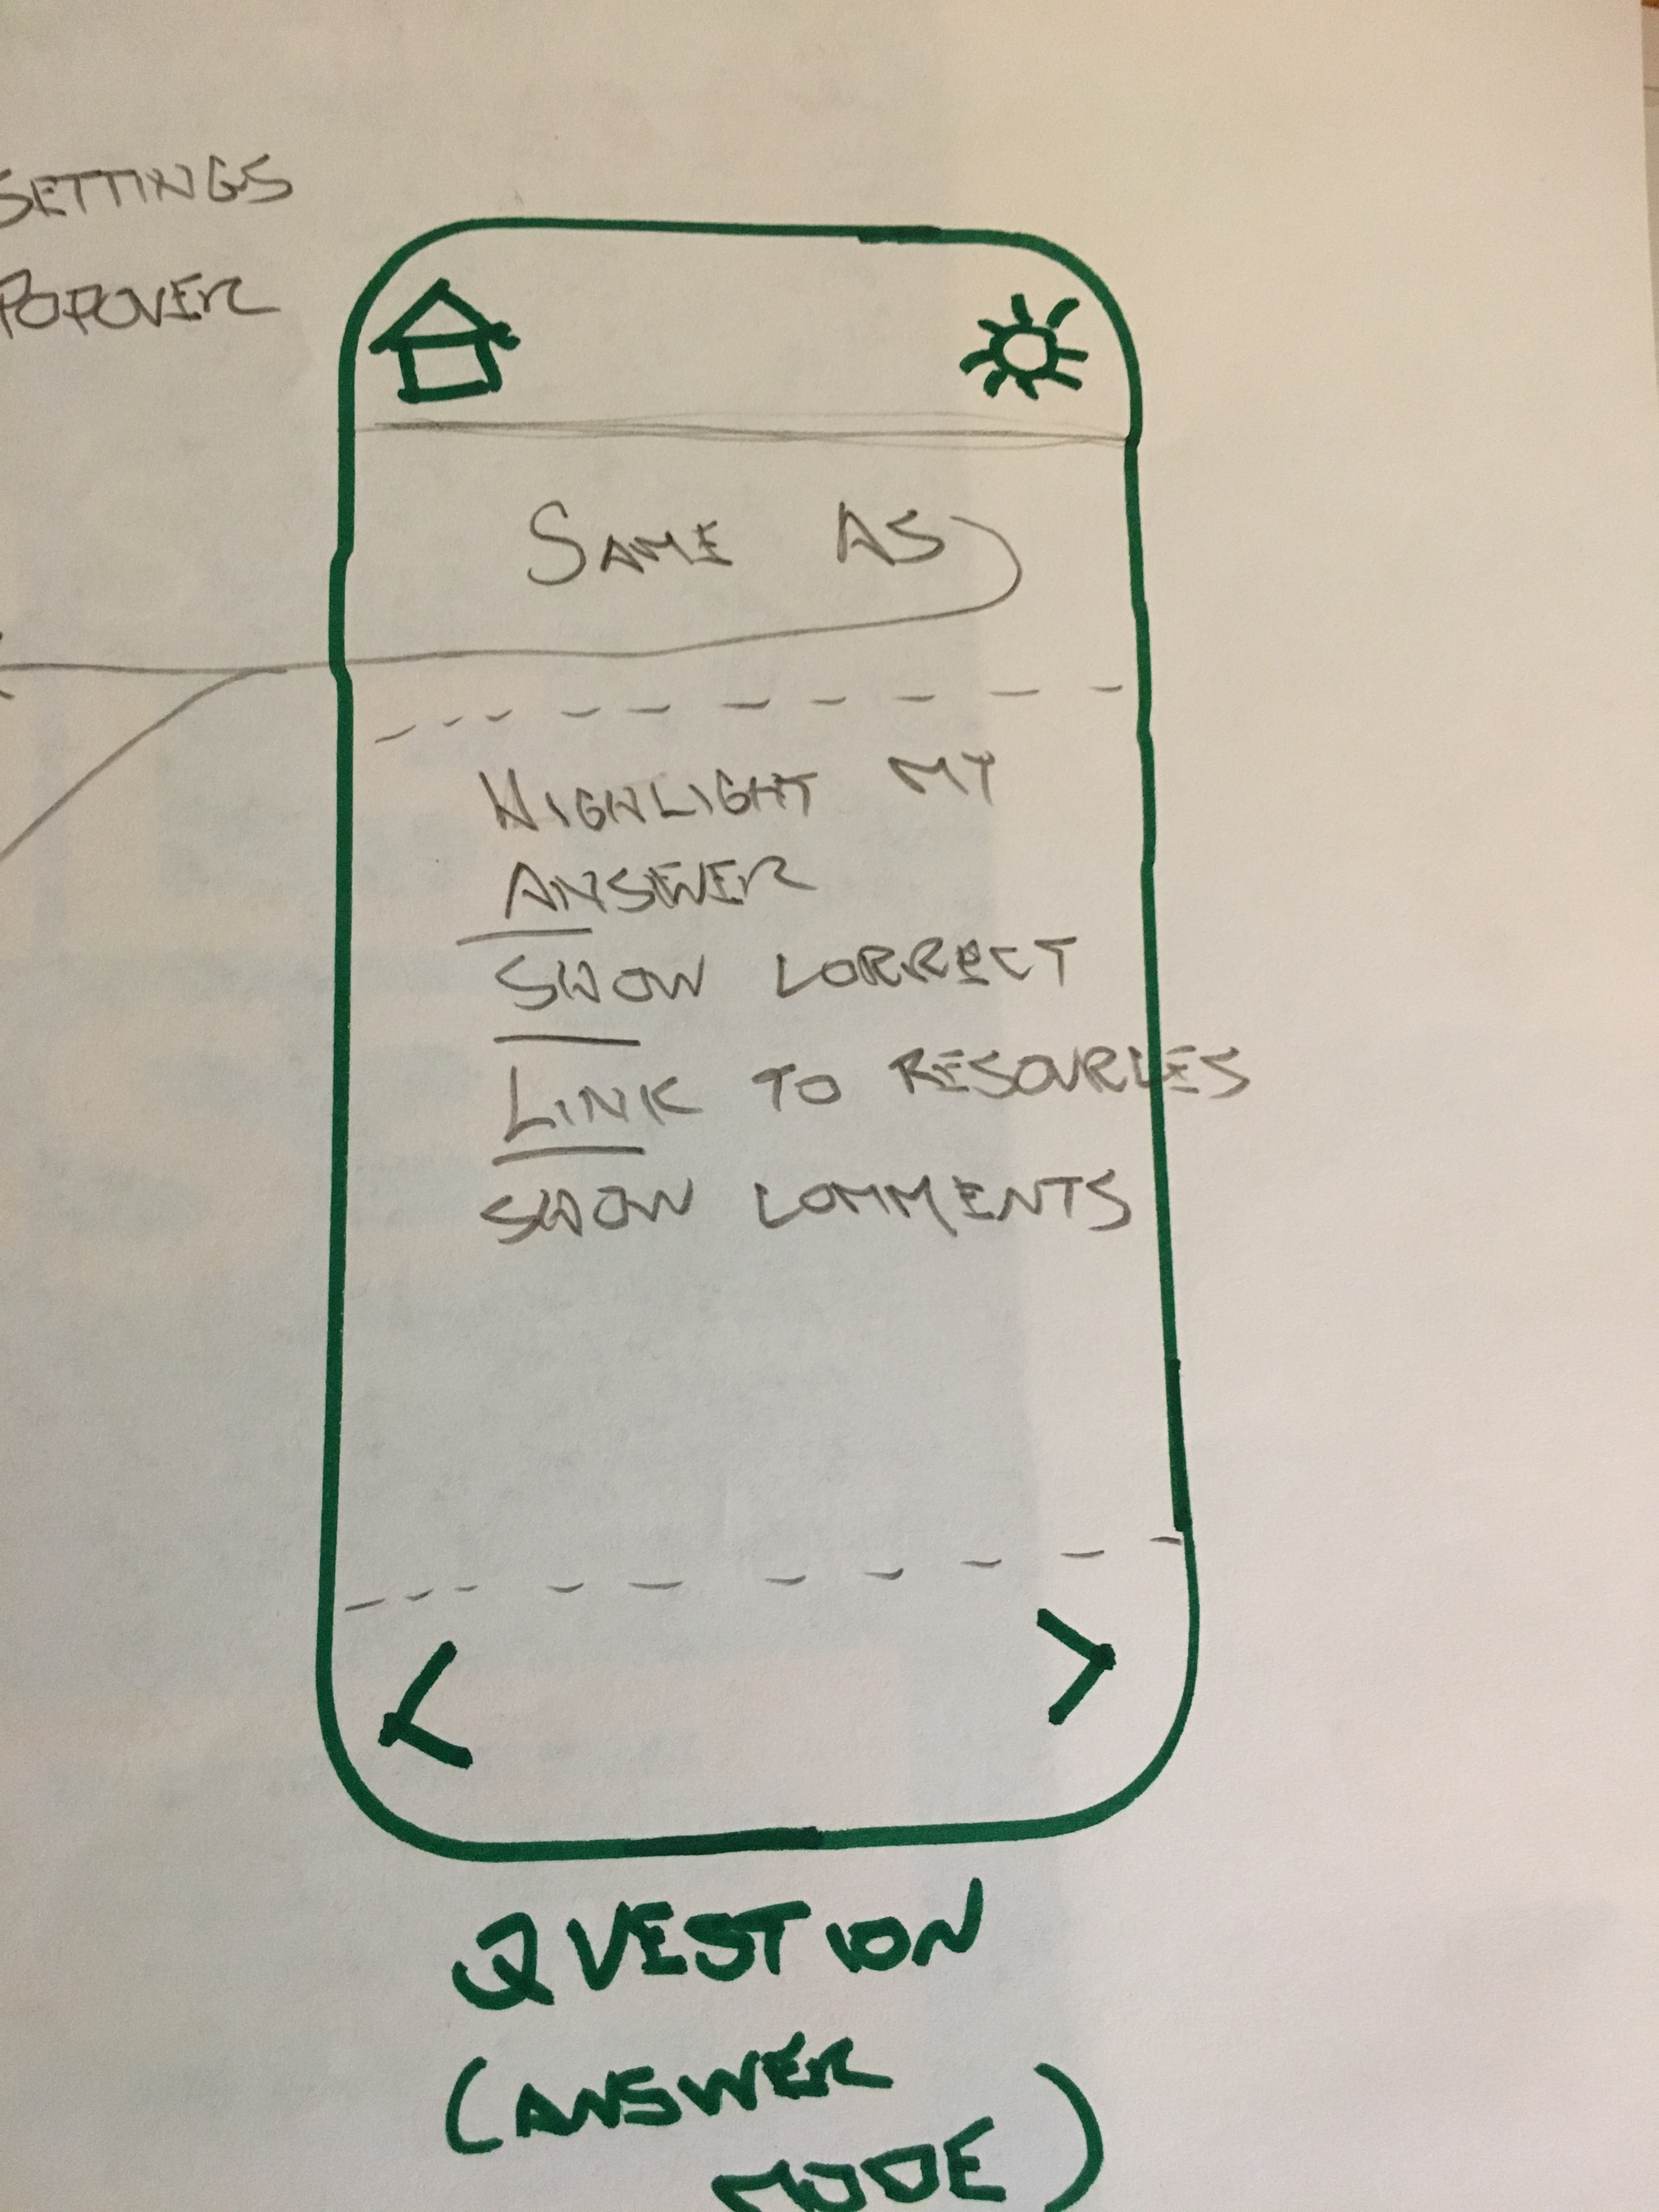 SETTINGS
POPOVER
SAME AS
HIGHLIGHT MY
ANSWER
SHOW CORRECT
LINK TO RESOURCES
SHOW COMMENTS
<
>
QUESTION
(ANSWER
MODE)